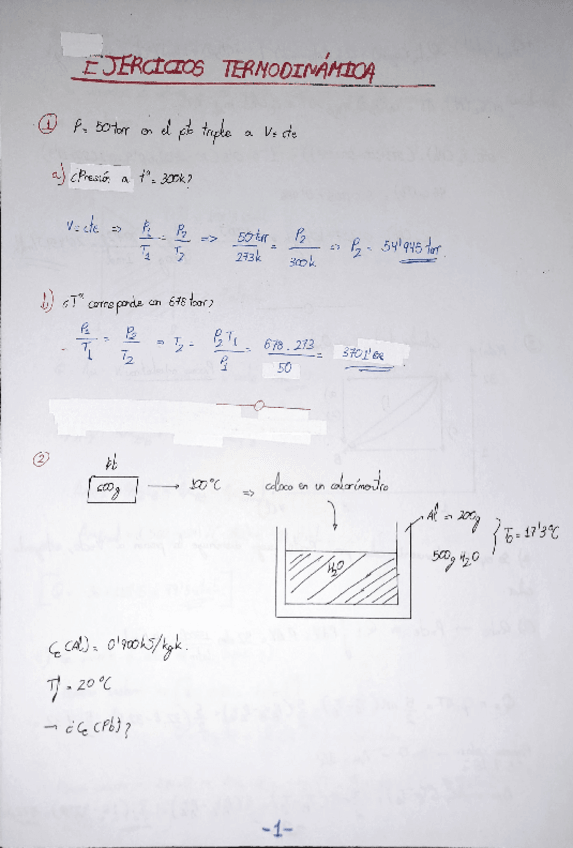 EJERCICIOS TERMODINÁMICA
① P = 50 torr en el pto triple a V = cte
a) ¿Presión a tª = 300k?
V = cte => P1/T1 = P2/T2 => 50 torr/273k = P2/300k => P2 = 54'945 torr.
b) ¿Tª corresponde con 678 torr?
P1/T1 = P2/T2 => T2 = P2T1/P1 = 678.273/50 =
②
Pb
600g → 100°C => coloco en un calorímetro
Al = 200g
500g H2O
T0 = 17'3°C
H2O
Ce(Al) = 0'900kJ/kgk.
Tf = 20°C
→ ¿Ce(Pb)?
-1-